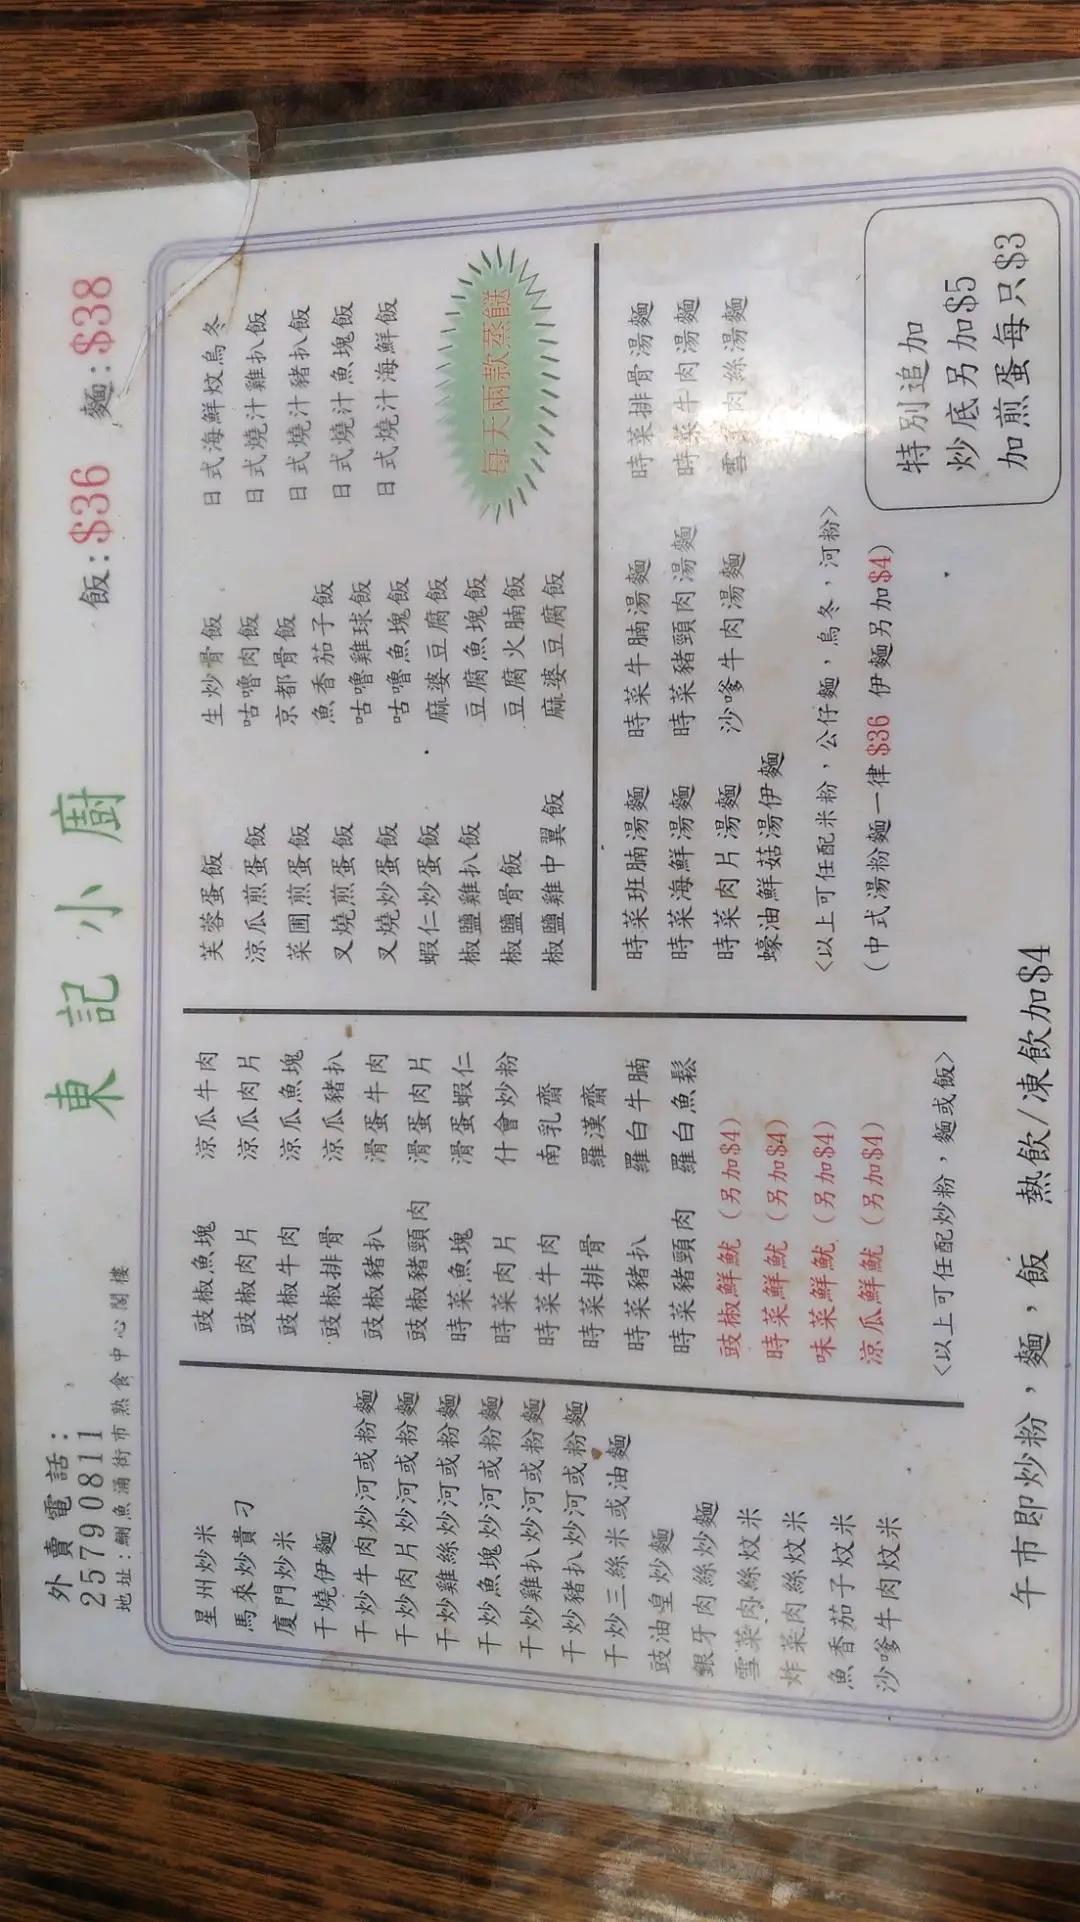 外賣電話:
25790811
地址:鰂魚涌街市熟食中心閣樓
東記小廚
飯:$36 麵:$38
星州炒米
馬來炒貴刁
廈門炒米
干燒伊麵
干炒牛肉炒河或粉麵
干炒肉片炒河或粉麵
干炒雞絲炒河或粉麵
干炒魚塊炒河或粉麵
干炒雞扒炒河或粉麵
干炒豬扒炒河或粉麵
干炒三絲米或油麵
豉油皇炒麵
銀牙肉絲炒麵
雪菜肉絲炆米
炸菜肉絲炆米
魚香茄子炆米
沙嗲牛肉炆米
豉椒魚塊
豉椒肉片
豉椒牛肉
豉椒排骨
豉椒豬扒
豉椒豬頸肉
時菜魚塊
時菜肉片
時菜牛肉
時菜排骨
時菜豬扒
時菜豬頸肉
豉椒鮮魷(另加$4)
時菜鮮魷(另加$4)
味菜鮮魷(另加$4)
涼瓜鮮魷(另加$4)
涼瓜牛肉
涼瓜肉片
涼瓜魚塊
涼瓜豬扒
滑蛋牛肉
滑蛋肉片
滑蛋蝦仁
什會炒粉
南乳齋
羅漢齋
羅白牛腩
羅白魚鬆
<以上可任配炒粉,麵或飯>
芙蓉蛋飯
涼瓜煎蛋飯
菜圃煎蛋飯
叉燒煎蛋飯
叉燒炒蛋飯
蝦仁炒蛋飯
椒鹽雞扒飯
椒鹽骨飯
椒鹽雞中翼飯
生炒骨飯
咕嚕肉飯
京都骨飯
魚香茄子飯
咕嚕雞球飯
咕嚕魚塊飯
麻婆豆腐飯
豆腐魚塊飯
豆腐火腩飯
麻婆豆腐飯
日式海鮮炆烏冬
日式燒汁雞扒飯
日式燒汁豬扒飯
日式燒汁魚塊飯
日式燒汁海鮮飯
每天兩款蒸餸
時菜班腩湯麵
時菜海鮮湯麵
時菜肉片湯麵
蠔油鮮菇湯伊麵
時菜牛腩湯麵
時菜豬頸肉湯麵
沙嗲牛肉湯麵
時菜排骨湯麵
時菜牛肉湯麵
雪菜肉絲湯麵
<以上可任配米粉,公仔麵,烏冬,河粉>
(中式湯粉麵一律$36 伊麵另加$4)
特別追加
炒底另加$5
加煎蛋每只$3
午市即炒粉,麵,飯 熱飲/凍飲加$4